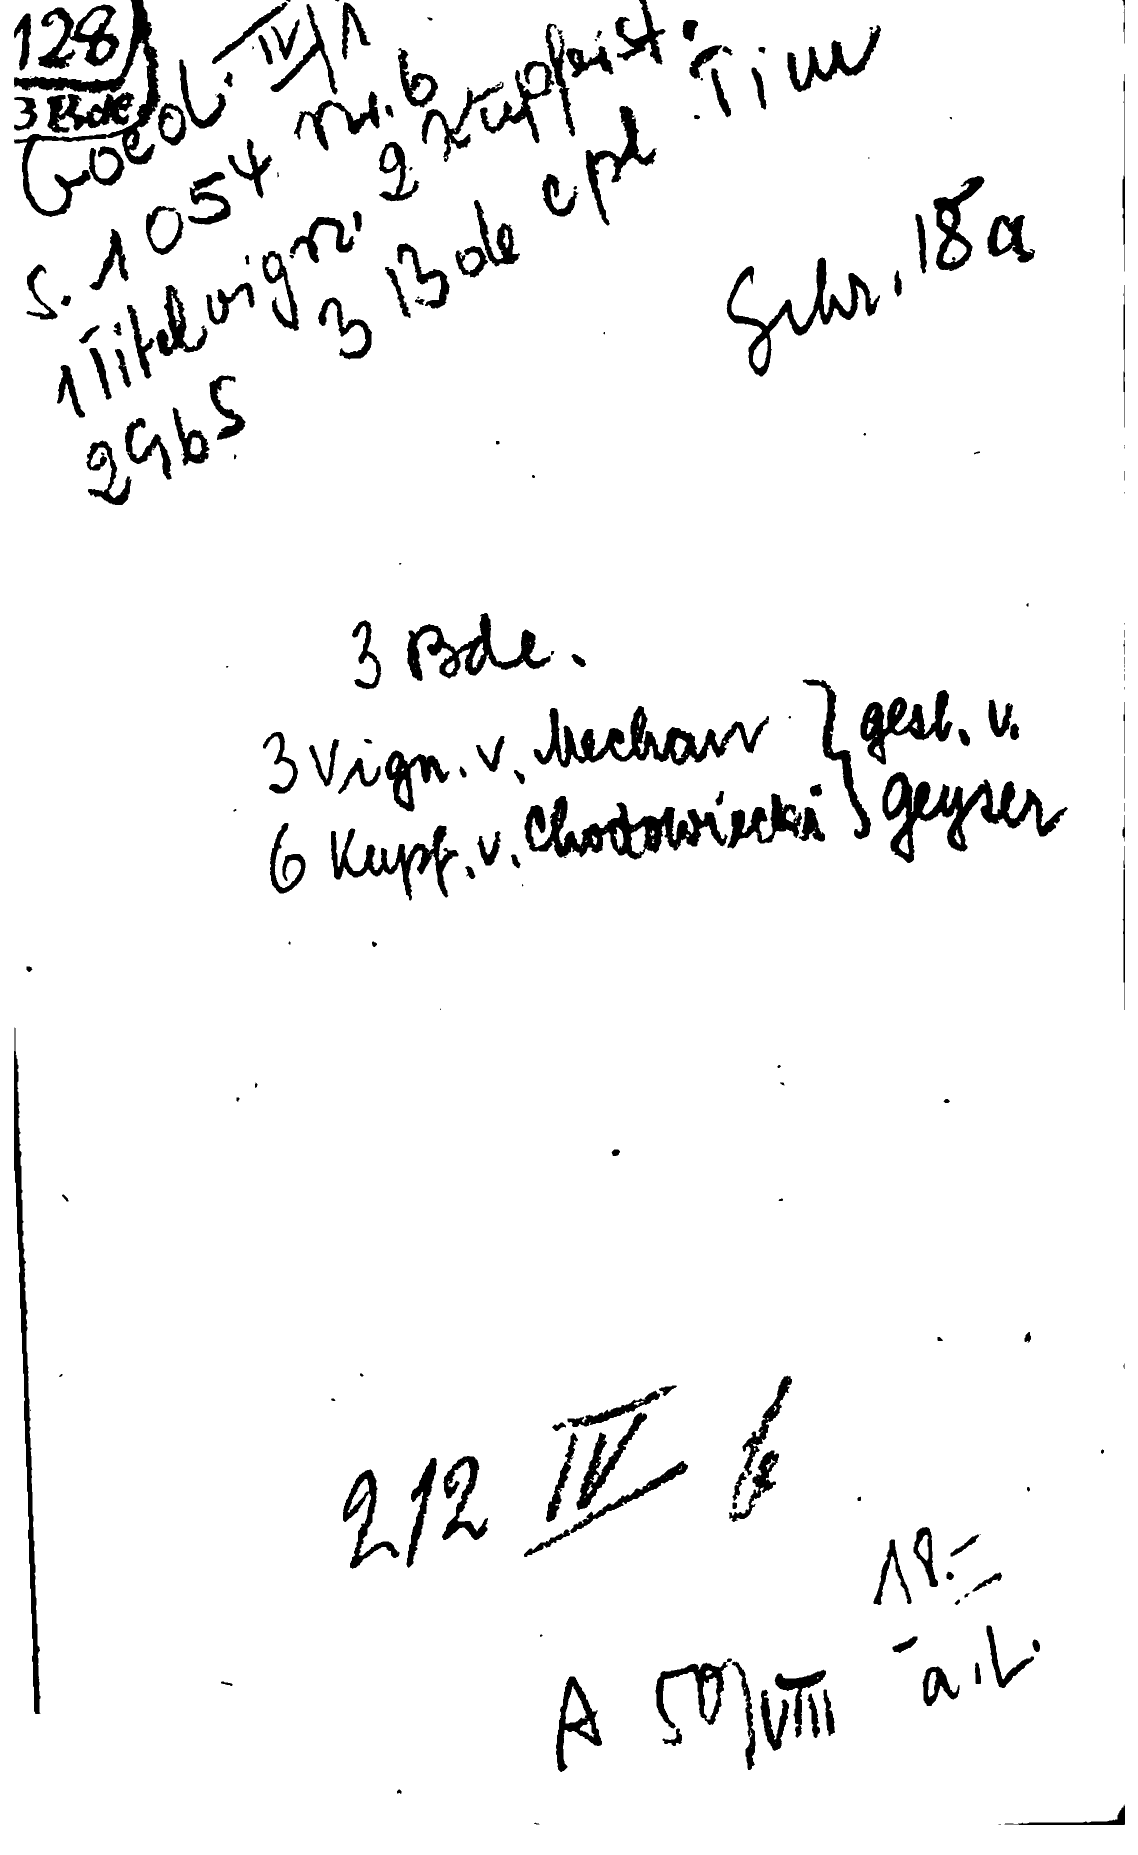 128
3 Bde
Goed. IV/1
S. 1054 Nr. 6
1 Titelvign. 2 Kupferst.
2965 3 Bde cpl Tim
Schr. 18a
3 Bde.
3 Vign. v. Mechau } gest. v.
6 Kupf. v. Chodowiecki } Geyser
212 IV
18.-
A 50/VIII a.L.